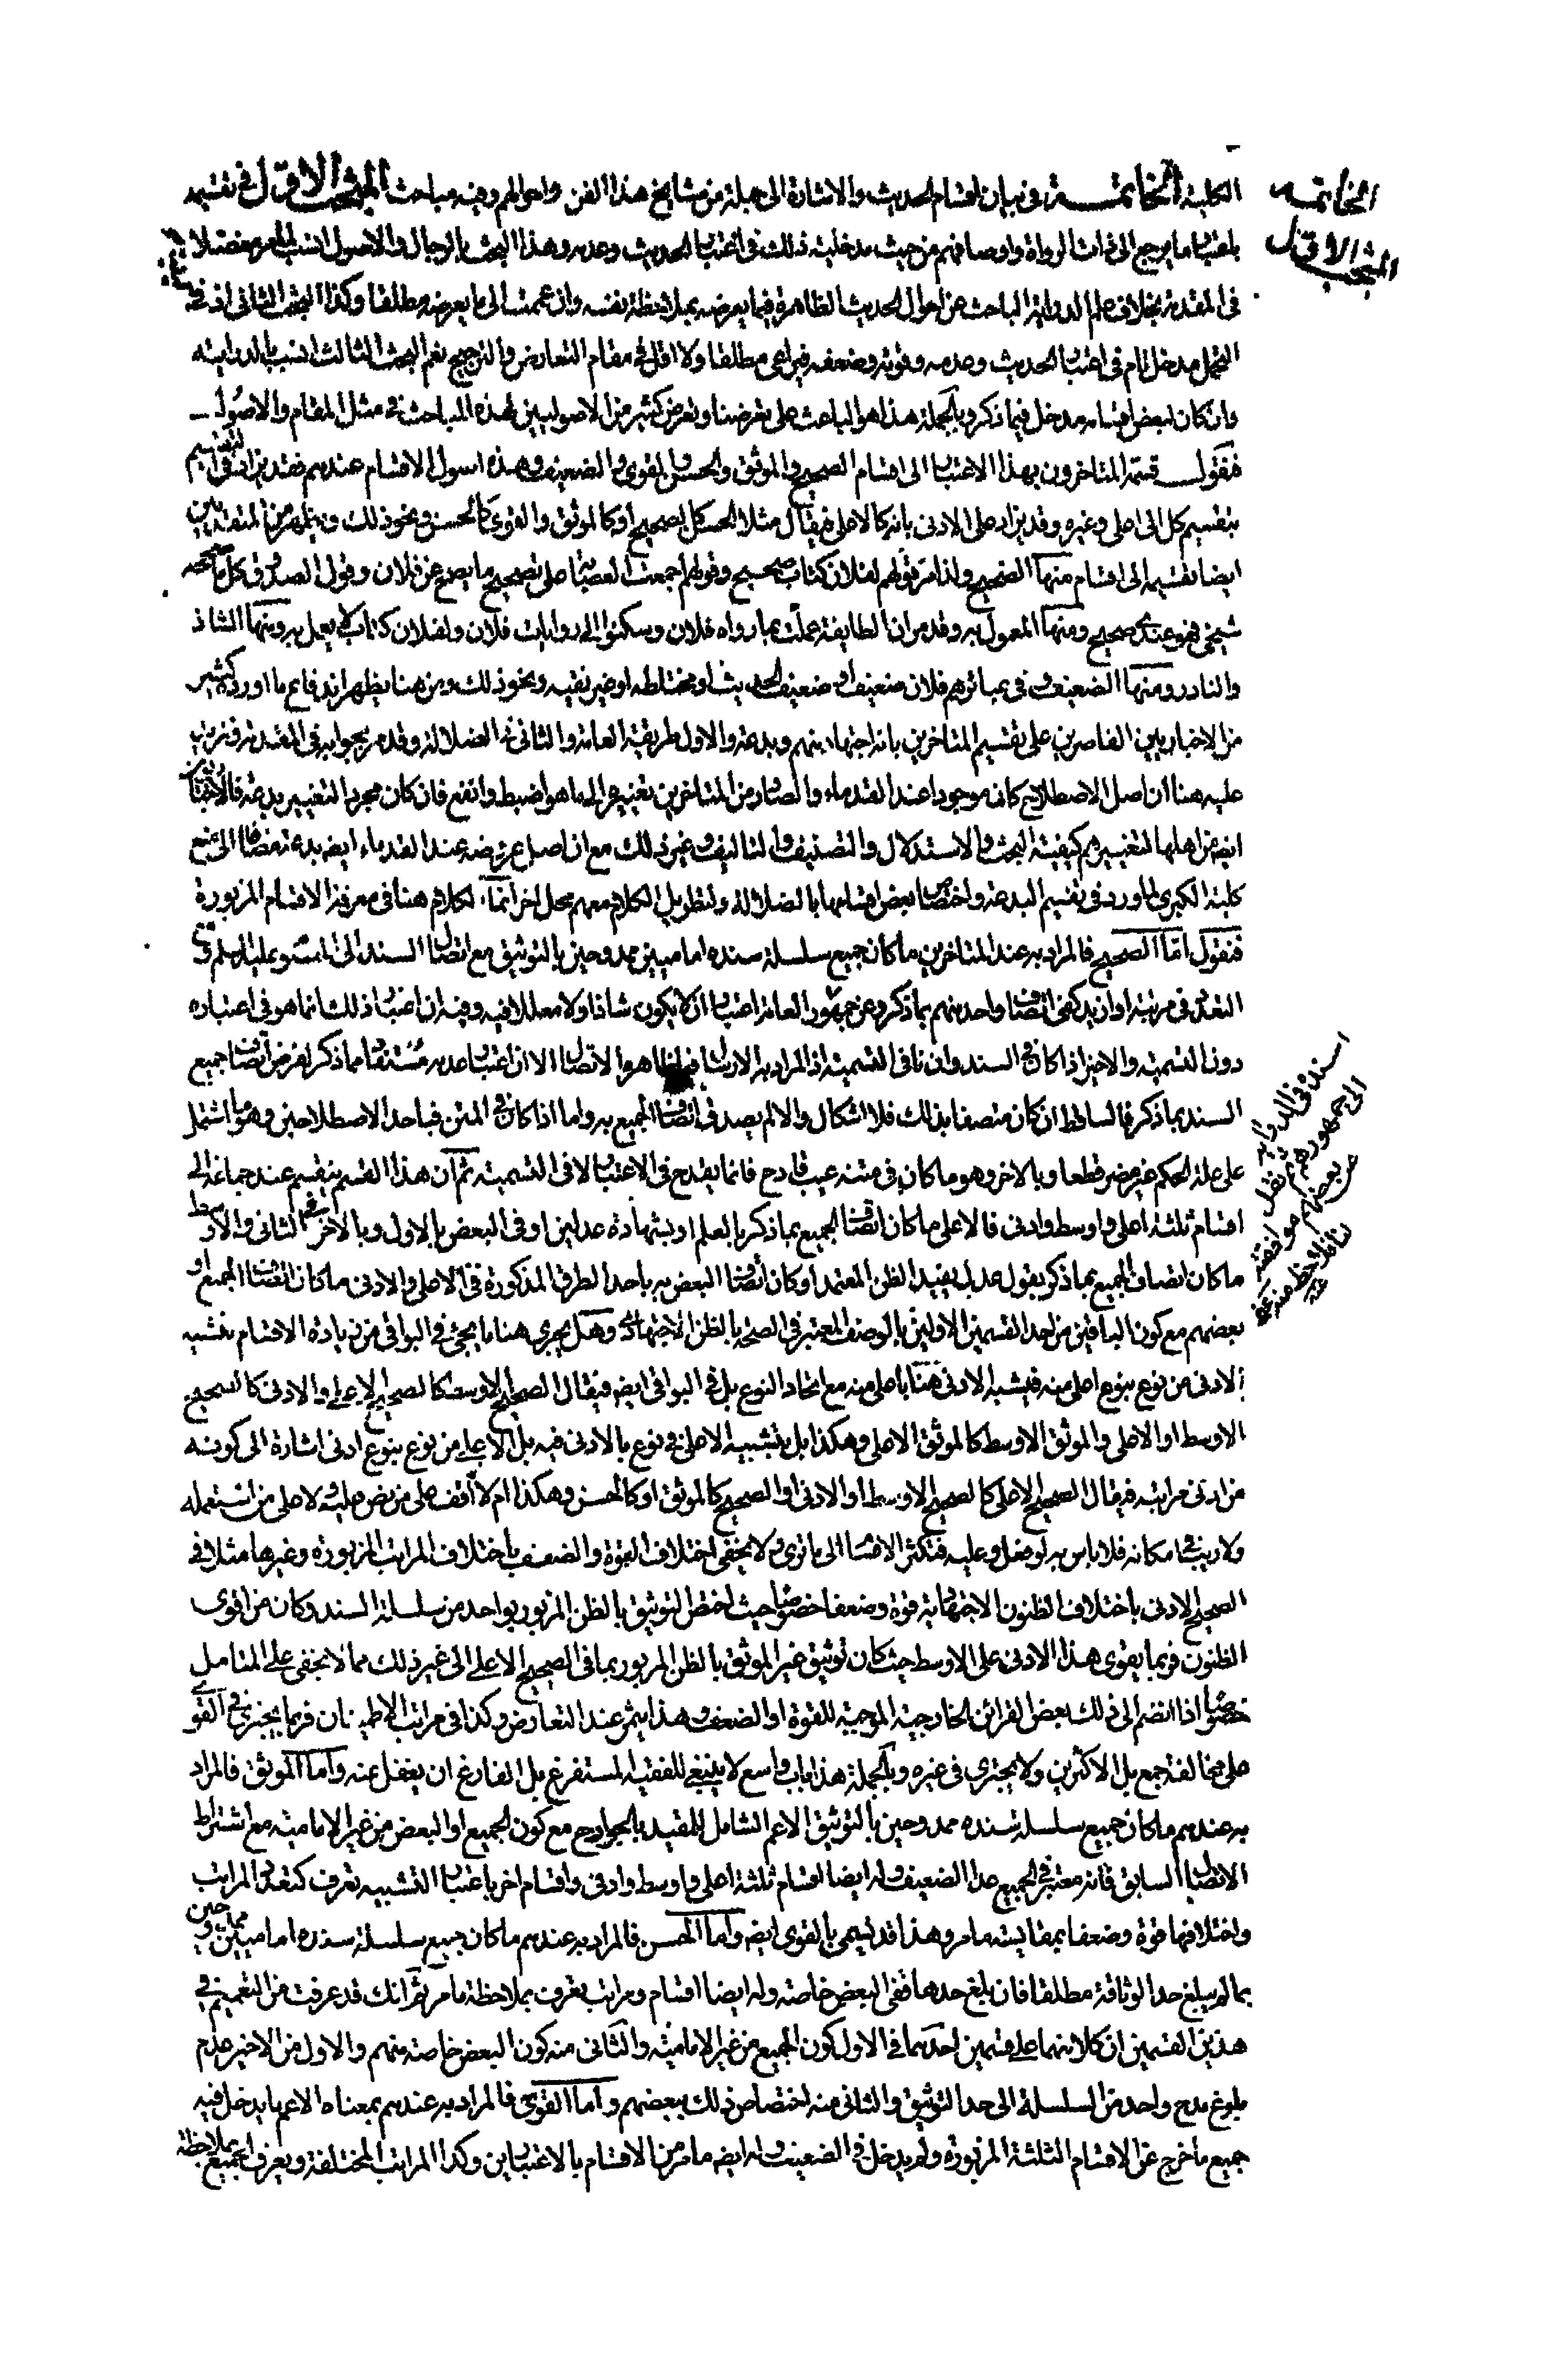 الكلية الخاتمة في بيان اقسام الحديث والاشارة الى جملة من مشايخ هذا الفن واحوالهم وفيه مباحث المبحث الاول في تقسيمه
الخاتمه
المبحث الاول
باعتبار ما يرجع الى ذات الرواة واوصافهم من حيث مدخلية ذلك في اعتبار الحديث وعدمه وهذا البحث بالرجال والاصول انسب لما مر مفصلا
في المقدمة بخلاف علم الدراية الباحث عن احوال الحديث الظاهرة فيما يعرضه بملاحظة نفسه وان عممت الى ما يعرضه مطلقا وكذا البحث الثاني اذ في
التحمل مدخل تام في اعتبار الحديث وعدمه وقوته وضعفه فيراعى مطلقا ولا اقل في مقام التعارض والترجيح نعم البحث الثالث انسب بالدراية
وان كان لبعض اقسامه مدخل فيما ذكر وبالجملة هذا هو الباعث على تعرضنا وتعرض كثير من الاصوليين لهذه المباحث في مثل المقام والاصول
فنقول قسمه المتاخرون بهذا الاعتبار الى اقسام الصحيح والموثق والحسن والقوي والضعيف وهذه اصول الاقسام عندهم فقد يزاد في التقسيم
بتقسيم كل الى اعلى وغيره وقد يزاد على الادنى بانه كالاعلى فيقال مثلا الحسن كالصحيح او كالموثق والقوي كالحسن ونحو ذلك ويظهر من المتقدمين
ايضا تقسيمه الى اقسام منها الصحيح ولذا مر قولهم لفلان كتاب صحيح وقولهم اجمعت العصابة على تصحيح ما يصح عن فلان وقول الصدوق كل ما صححه
شيخي فهو عندي صحيح ومنها المعمول به وقد مر ان الطايفة عملت بما رواه فلان وسكنوا الى روايات فلان ولفلان كتاب لا يعمل به ومنها الشاذ
والنادر ومنها الضعيف وفي عبائرهم فلان ضعيف او ضعيف الحديث او مختلطه او غير نقيه ونحو ذلك ومن هنا يظهر اندفاع ما اورده كثير
من الاخباريين القاصرين على تقسيم المتاخرين بانه اجتهاد منهم وبدعة والاول طريقة العامة والثاني في الضلالة وقد مر جوابه في المقدمة ونزيد
عليه هنا ان اصل الاصطلاح كان موجودا عند القدماء والصادر من المتاخرين تغييره الى ما هو اضبط وانفع فان كان مجرد التغيير بدعة فالاخباريون
ايضا من اهلها لتغييرهم كيفية البحث والاستدلال والتصنيف والتاليف وغير ذلك مع ان اصل عروضه عند القدماء ايضا بدعة مضافا الى منع
كلية الكبرى لما ورد في تقسيم البدعة واختصاص بعض اقسامها بالضلالة ولتطويل الكلام معهم محل اخر انما الكلام هنا في معرفة الاقسام المزبورة
فنقول اما الصحيح فالمراد به عند المتاخرين ما كان جميع سلسلة سنده اماميين ممدوحين بالتوثيق مع اتصال السند الى المعصوم عليه السلم ومع
التعدد في مرتبة او ازيد كفى اتصاف واحد منهم بما ذكر وعن جمهور العامة اعتبار ان لا يكون شاذا ولا معللا فيه وفيه ان اعتبار ذلك انما هو في اعتباره
دون التسمية والاخير اذا كان في السند وان نافى التسمية اذ المراد به الارسال فيما ظاهره الاتصال الا ان اعتبار عدمه مستفاد مما ذكر لفرض اتصاف جميع
السند بما ذكر فالساقط ان كان متصفا بذلك فلا اشكال والا لم يصدق اتصاف الجميع به واما اذا كان في المتن فباحد الاصطلاحين وهو ما اشتمل
على علة الحكم غير مضر قطعا وبالاخر وهو ما كان في متنه عيب قادح فانما يقدح في الاعتبار لا في التسمية ثم ان هذا القسم ينقسم عند جماعة الى
اقسام ثلثة اعلى واوسط وادنى فالاعلى ما كان اتصاف الجميع بما ذكر بالعلم او بشهادة عدلين او في البعض بالاول وبالاخر في الثاني والاوسط
ما كان اتصاف الجميع بما ذكر بقول عدل يفيد الظن المعتمد او كان اتصاف البعض به باحد الطرق المذكورة في الاعلى والادنى ما كان اتصاف الجميع او
بعضهم مع كون الباقين من احد القسمين الاولين بالوصف المعتبر في الصحة بالظن الاجتهادي وهل يجري هنا ما يجئ في البواقي من زيادة الاقسام بتشبيه
الادنى من نوع بنوع اعلى منه فيشبه الادنى هنا باعلى منه مع اتحاد النوع بل في البواقي ايضا فيقال الصحيح الاوسط كالصحيح الاعلى والادنى كالصحيح
الاوسط او الاعلى والموثق الاوسط كالموثق الاعلى وهكذا بل بتشبيه الاعلى في نوع بالادنى فيه بل الاعلى من نوع بنوع ادنى اشارة الى كونه
من ادنى مراتبه فيقال الصحيح الاعلى كالصحيح الاوسط او الادنى او الصحيح كالموثق او كالحسن وهكذا ام لا لم اقف على من نص عليه ولا على من استعمله
ولا ريب في امكانه فلا باس به لو فعل وعليه فتكثر الاقسام الى ما ترى ولا يخفى اختلاف القوة والضعف باختلاف المراتب المزبورة وغيرها مثلا في
الصحيح الادنى باختلاف الظنون الاجتهادية قوة وضعفا خصوصا حيث اختص التوثيق بالظن المزبور بواحد من سلسلة السند وكان من اقوى
الظنون فربما يقوى هذا الادنى على الاوسط حيث كان توثيق غير الموثق بالظن المزبور بما في الصحيح الاعلى الى غير ذلك مما لا يخفى على المتامل
خصوصا اذا انضم الى ذلك بعض القرائن الخارجية الموجبة للقوة او الضعف وهذا يثمر عند التعارض وكذا في مراتب الاطمينان فربما يجترئ في القوي
على مخالفة جمع بل الاكثرين ولا يجترئ في غيره وبالجملة هذا باب واسع لا ينبغي للفقيه المستفرغ بل الفارغ ان يغفل عنه واما الموثق فالمراد
به عندهم ما كان جميع سلسلة سنده ممدوحين بالتوثيق الاعم الشامل للمقيد بالجوارح مع كون الجميع او البعض من غير الامامية مع اشتراط
الاتصال السابق فانه معتبر في الجميع عدا الضعيف وله ايضا اقسام ثلثة اعلى واوسط وادنى واقسام اخر باعتبار التشبيه تعرف كتعدد المراتب
واختلافها قوة وضعفا بمقايسة ما مر وهذا قد يسمى بالقوي ايضا واما الحسن فالمراد به عندهم ما كان جميع سلسلة سنده اماميين ممدوحين
بما لم يبلغ حد الوثاقة مطلقا فان بلغ حدها ففي البعض خاصة وله ايضا اقسام ومراتب تعرف بملاحظة ما مر ثم انك قد عرفت من التعميم في
هذين القسمين ان كلا منهما على قسمين احدهما في الاول كون الجميع من غير الامامية والثاني منه كون البعض خاصة منهم والاول من الاخير عدم
بلوغ مدح واحد من السلسلة الى حد التوثيق والثاني منه اختصاص ذلك ببعضهم واما القوي فالمراد به عندهم بمعناه الاعم ما يدخل فيه
جميع ما خرج عن الاقسام الثلثة المزبورة ولم يدخل في الضعيف وله ايضا ما مر من الاقسام بالاعتبارين وكذا المراتب المختلفة ويعرف الجميع بملاحظة
اسنده في الدراية
الى جمهورهم ثم نقل
عن بعضهم موافقته